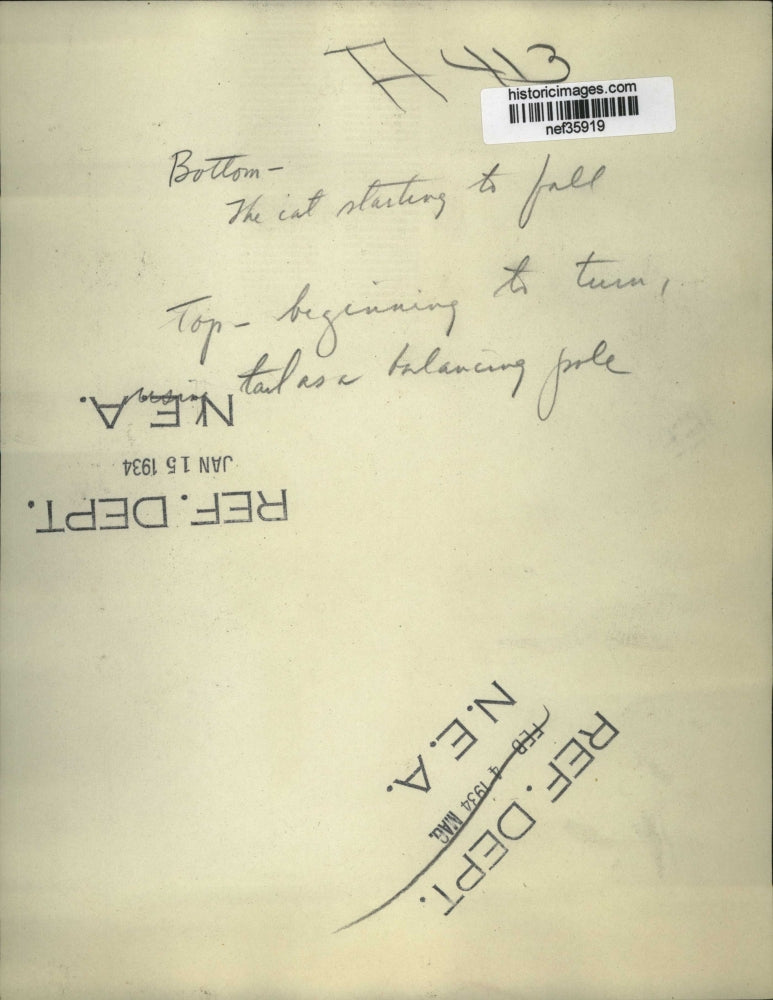 historicimages.com
nef35919
Bottom-
The cat starting to fall
Top- beginning to turn,
tail as a balancing pole
N.E.A.
JAN 15 1934
REF. DEPT.
REF. DEPT.
FEB 4 1934 MAG.
N.E.A.